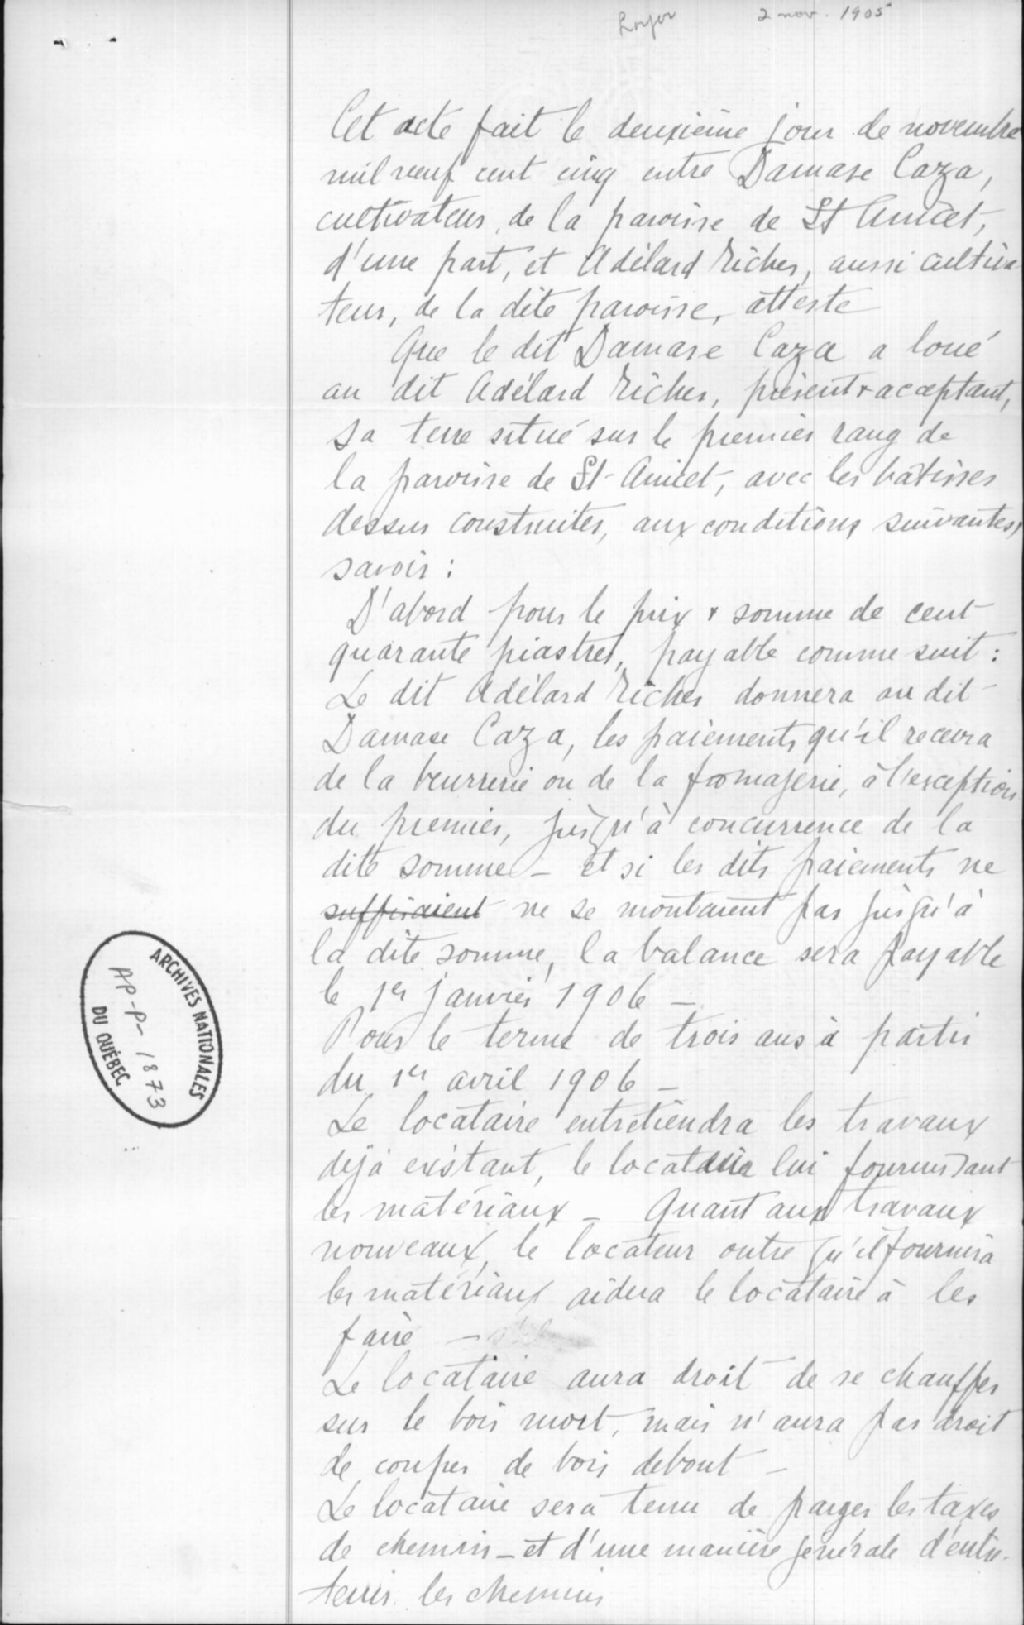 2 nov. 1905
Cet acte fait le deuxième jour de novembre
mil neuf cent cinq entre Damase Caza,
cultivateur, de la paroisse de St Anicet,
d'une part, et Adélard Riches, aussi cultiva
teur, de la dite paroisse, atteste
Que le dit Damase Caza a loué
au dit Adélard Riches, présent & acceptant,
sa terre situé sur le premier rang de
la paroisse de St-Anicet, avec les bâtisses
dessus construites, aux conditions suivantes,
savoir :
D'abord pour le prix & somme de cent
quarante piastres, payable comme suit :
Le dit Adélard Riches donnera au dit
Damase Caza, les paiements qu'il recevra
de la beurrerie ou de la fromagerie, à l'exception
du premier, jusqu'à concurrence de la
dite somme - et si les dits paiements ne
suffiraient ne se montaient pas jusqu'à
la dite somme, la balance sera payable
le 1er janvier 1906 -
Pour le terme de trois ans à partir
du 1er avril 1906 -
Le locataire entretiendra les travaux
déjà existant, le locataire lui fournissant
les matériaux - Quant aux travaux
nouveaux, le locateur outre qu'il fournira
les matériaux aidera le locataire à les
faire -
Le locataire aura droit de se chauffer
sur le bois mort, mais n'aura pas droit
de couper de bois debout -
Le locataire sera tenu de payer les taxes
de chemins - et d'une manière générale d'entre-
tenir les chemins
ARCHIVES NATIONALES
AP-P-1873
DU QUÉBEC